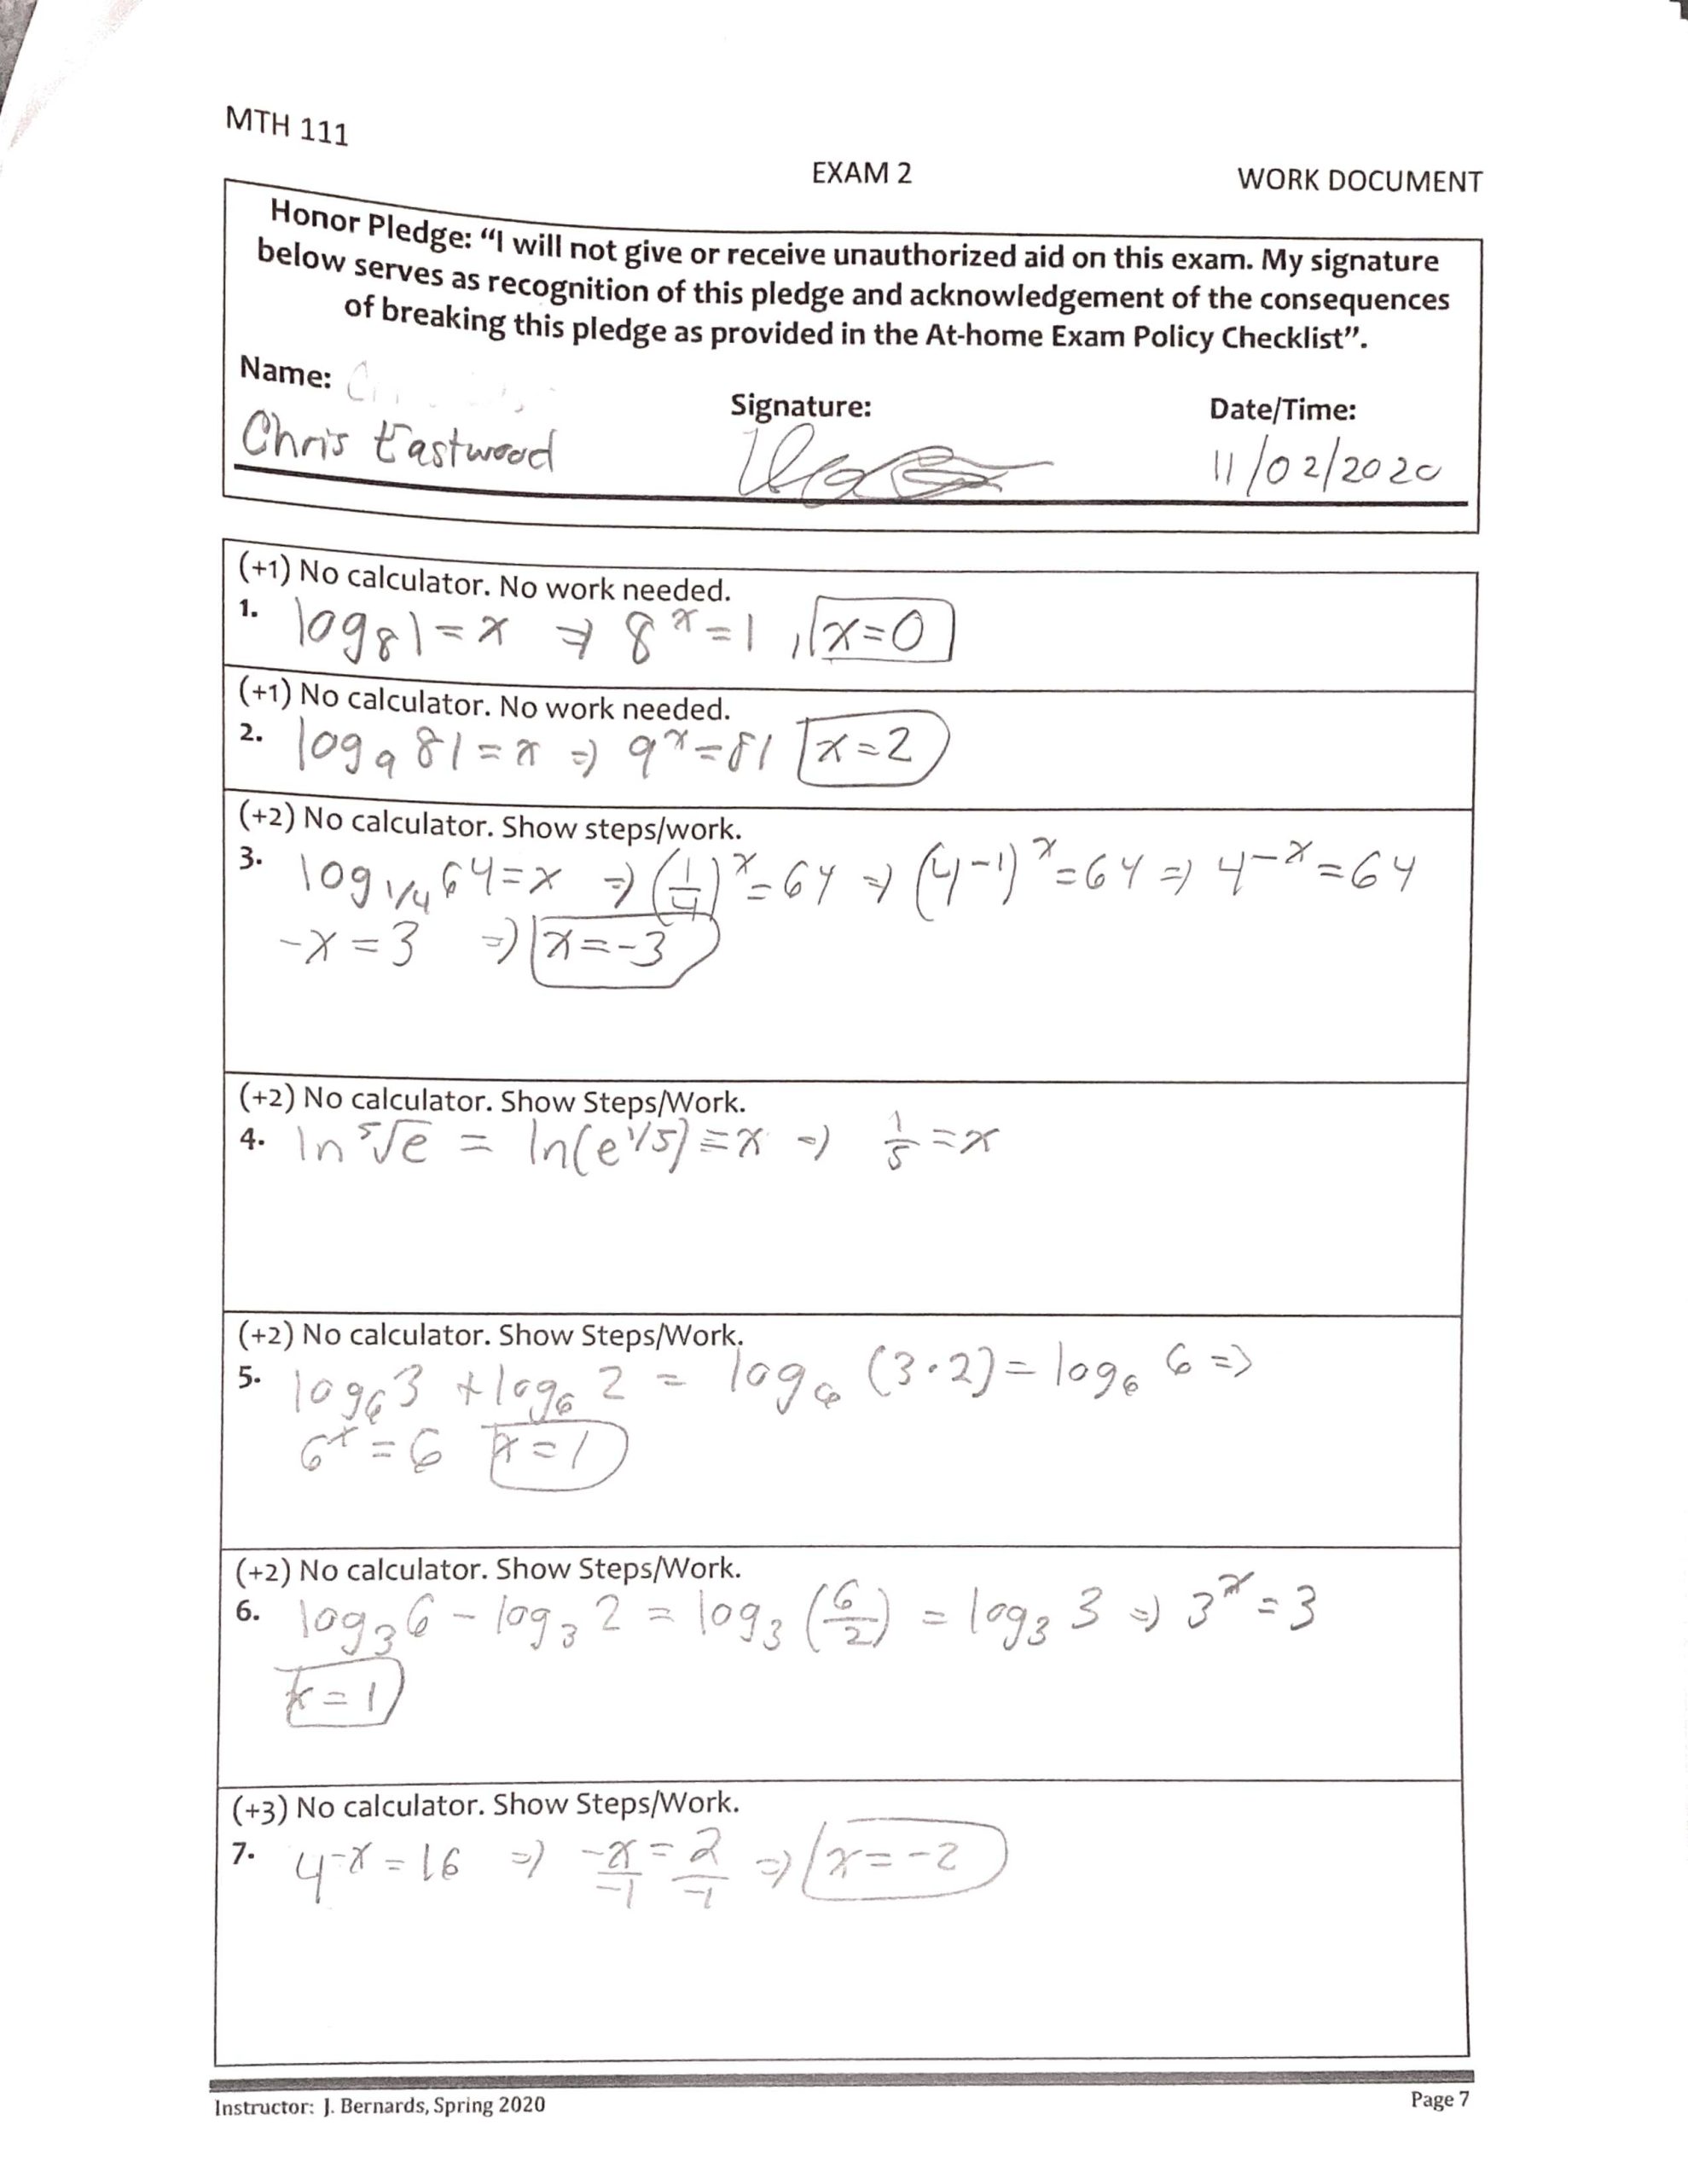 MTH 111
EXAM 2
WORK DOCUMENT
Honor Pledge: “I will not give or receive unauthorized aid on this exam. My signature
below serves as recognition of this pledge and acknowledgement of the consequences
of breaking this pledge as provided in the At-home Exam Policy Checklist”.
Name:
Signature:
Date/Time:
Chris Eastwood
11/02/2020
(+1) No calculator. No work needed.
1. log₈1 = x ⇒ 8^x = 1, x=0
(+1) No calculator. No work needed.
2. log₉ 81 = x ⇒ 9^x = 81 x=2
(+2) No calculator. Show steps/work.
3. log_1/4 64 = x ⇒ (1/4)^x = 64 ⇒ (4^-1)^x = 64 ⇒ 4^-x = 64
-x = 3 ⇒ x=-3
(+2) No calculator. Show Steps/Work.
4. ln ⁵√e = ln(e^1/5) = x ⇒ 1/5 = x
(+2) No calculator. Show Steps/Work.
5. log₆3 + log₆ 2 = log₆ (3·2) = log₆ 6 ⇒
6^x = 6 x=1
(+2) No calculator. Show Steps/Work.
6. log₃6 - log₃ 2 = log₃ (6/2) = log₃ 3 ⇒ 3^x = 3
x=1
(+3) No calculator. Show Steps/Work.
7. 4^-x = 16 ⇒ -x/-1 = 2/-1 ⇒ x=-2
Instructor: J. Bernards, Spring 2020
Page 7